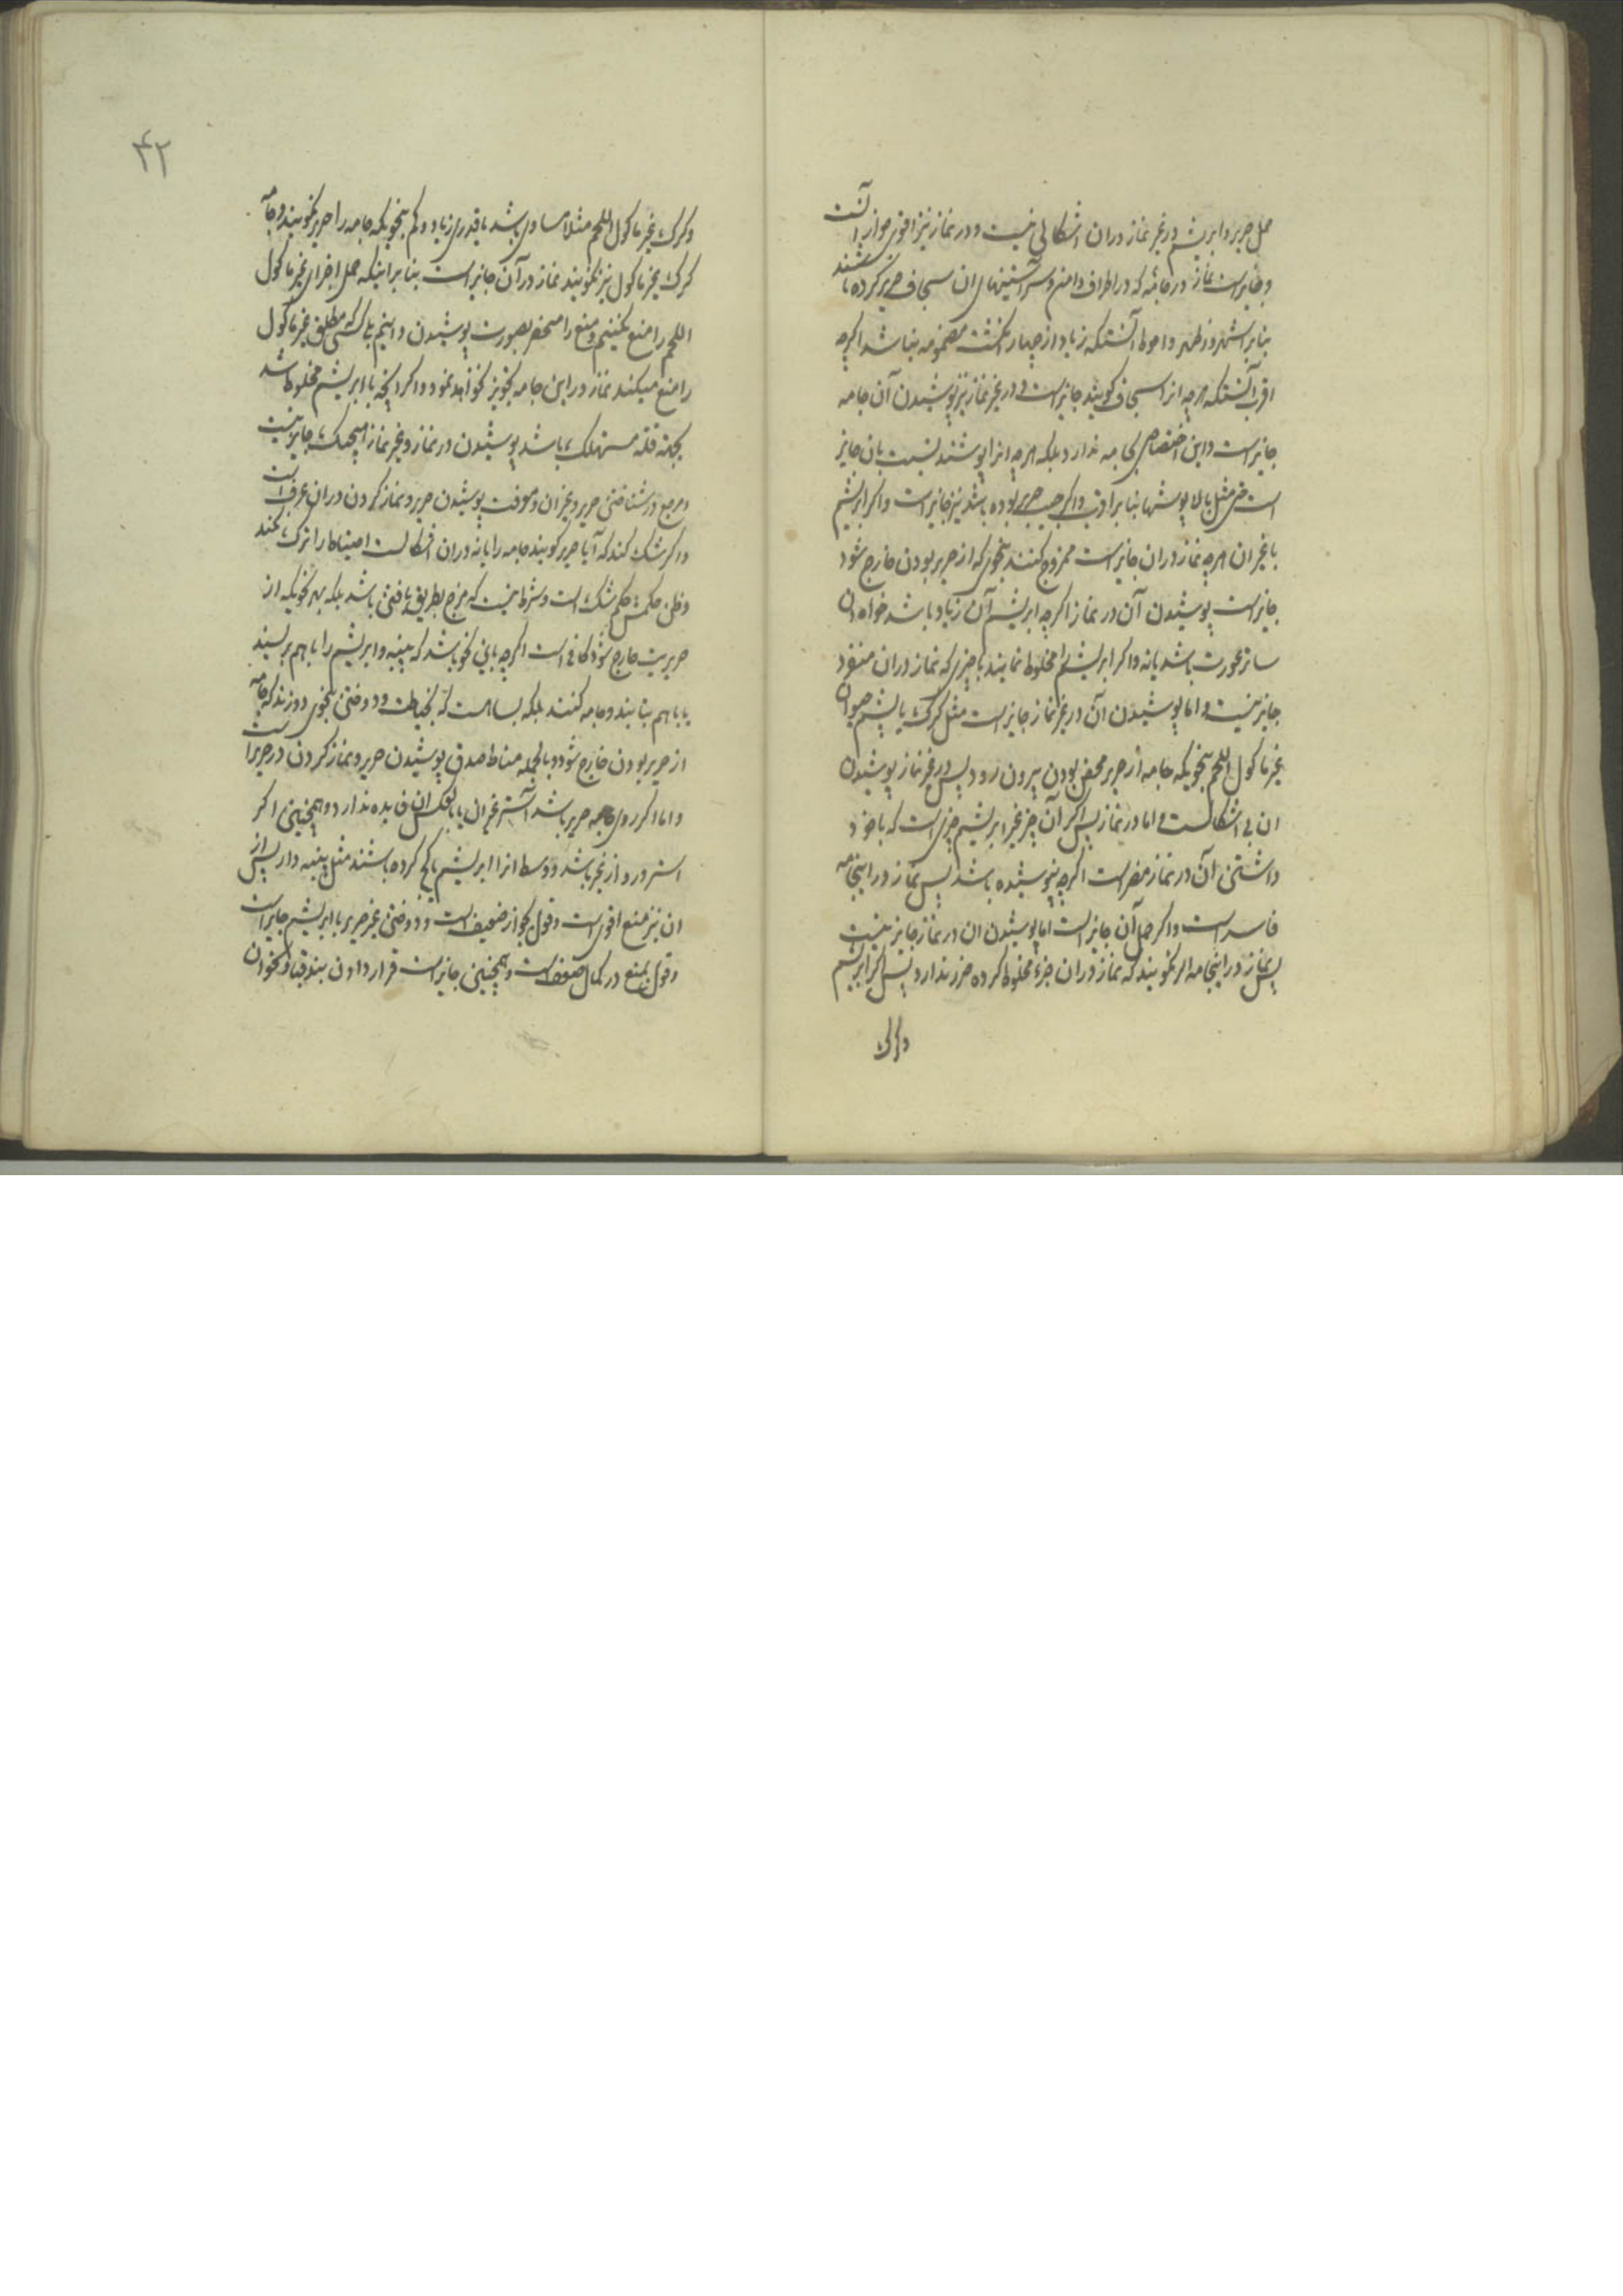 حمل حریر و ابریشم در غیر نماز در آن اشکالی نیست و در نماز نیز اقوی جواز آنست
و جایز است نماز در جامه که در اطراف دامن و سر آستینهای ان سجاف حریر کرده باشند
بنابر اشهر و اظهر و احوط آنستکه زیاد از چهار انکشت مضمومه نباشد اکرچه
اقرب آنستکه هرچه انرا سجاف کویند جایز است و در غیر نماز نیز پوشیدن آن جامه
جایز است و این اختصاص بجامه ندارد بلکه هرچه انرا پوشند نسبت بان جایز
است حتی مثل بالاپوشها بنابر اقرب و اکر جیب حریر بوده باشد نیز جایز است و اکر ابریشم
با غیر ان هرچه نماز در ان جایز است ممزوج کنند بنحوی که از حریر بودن خارج شود
جایز است پوشیدن آن در نماز اکرچه ابریشم آن زیاد باشد خواه ان
ساتر عورت باشد یا نه و اکر ابریشم را مخلوط نمایند با چیزی که نماز در ان منفرد
جایز نیست و اما پوشیدن آن در غیر نماز جایز است مثل کرک یا پشم حیوان
غیر ماکول اللحم بنحویکه جامه از حریر محض بودن بیرون رود پس در غیر نماز پوشیدن
ان بی اشکالست و اما در نماز پس اکر آن جزء غیر ابریشم چیزی است که با خود
داشتن آن در نماز مضر است اکرچه نپوشیده باشد پس نماز در اینجامه
فاسد است و اکر حمل آن جایز است اما پوشیدن ان در نماز جایز نیست
پس نماز در اینجامه اکر نکویند که نماز در ان جزء مخلوط کرده ضرر ندارد پس اکر ابریشم
و کرک
۴۲
و کرک غیر ماکول اللحم مثلا مساوی باشد یا قدری زیاد و کم بنحویکه جامه را حریر نکویند و جامه
کرک غیر ماکول نیز نکویند نماز در آن جایز است بنابر اینکه حمل اجزای غیر ماکول
اللحم را منع نکنیم و منع را منحصر بصورت پوشیدن دانیم یا کسی که مطلق غیر ماکول
را منع میکند نماز در این جامه تجویز نخواهد نمود و اکر انچه با ابریشم مخلوط شد
بجهة قلة مستهلک باشد پوشیدن در نماز و غیر نماز هیچیک جایز نیست
و مرجع در شناختن حریر و غیر ان و معرفت پوشیدن حریر و نماز کردن در ان عرف است
و اکر شک کند که آیا حریر کویند جامه را یا نه در ان اشکالست احتیاط را ترک نکند
و ظن حکمش حکم شک است و شرط نیست که مزج بطریق بافتن باشد بلکه بهر نحویکه از
حریریت خارج شود کافی است اکرچه باین نحو باشد که پنبه و ابریشم را با هم بریسند
یا با هم بتابند و جامه کنند بلکه بسا هست که بخیاطت و دوختن بنحوی دوزند که جامه
از حریر بودن خارج شود و بالجمله مناط صدق پوشیدن حریر و نماز کردن در حریر است
و اما اکر روی جامه حریر باشد آستر غیر ان یا بالعکس ان فایده ندارد و همچنین اکر
استر و رو از غیر باشد و وسط انرا ابریشم یا کج کرده باشند مثل پنبه دار پس از
ان نیز منع اقوی است و قول بجواز ضعیف است و دوختن غیر حریر با ابریشم جایز است
و قول بمنع در کمال ضعف است و همچنین جایز است قرار دادن بند قبا و نحو ان